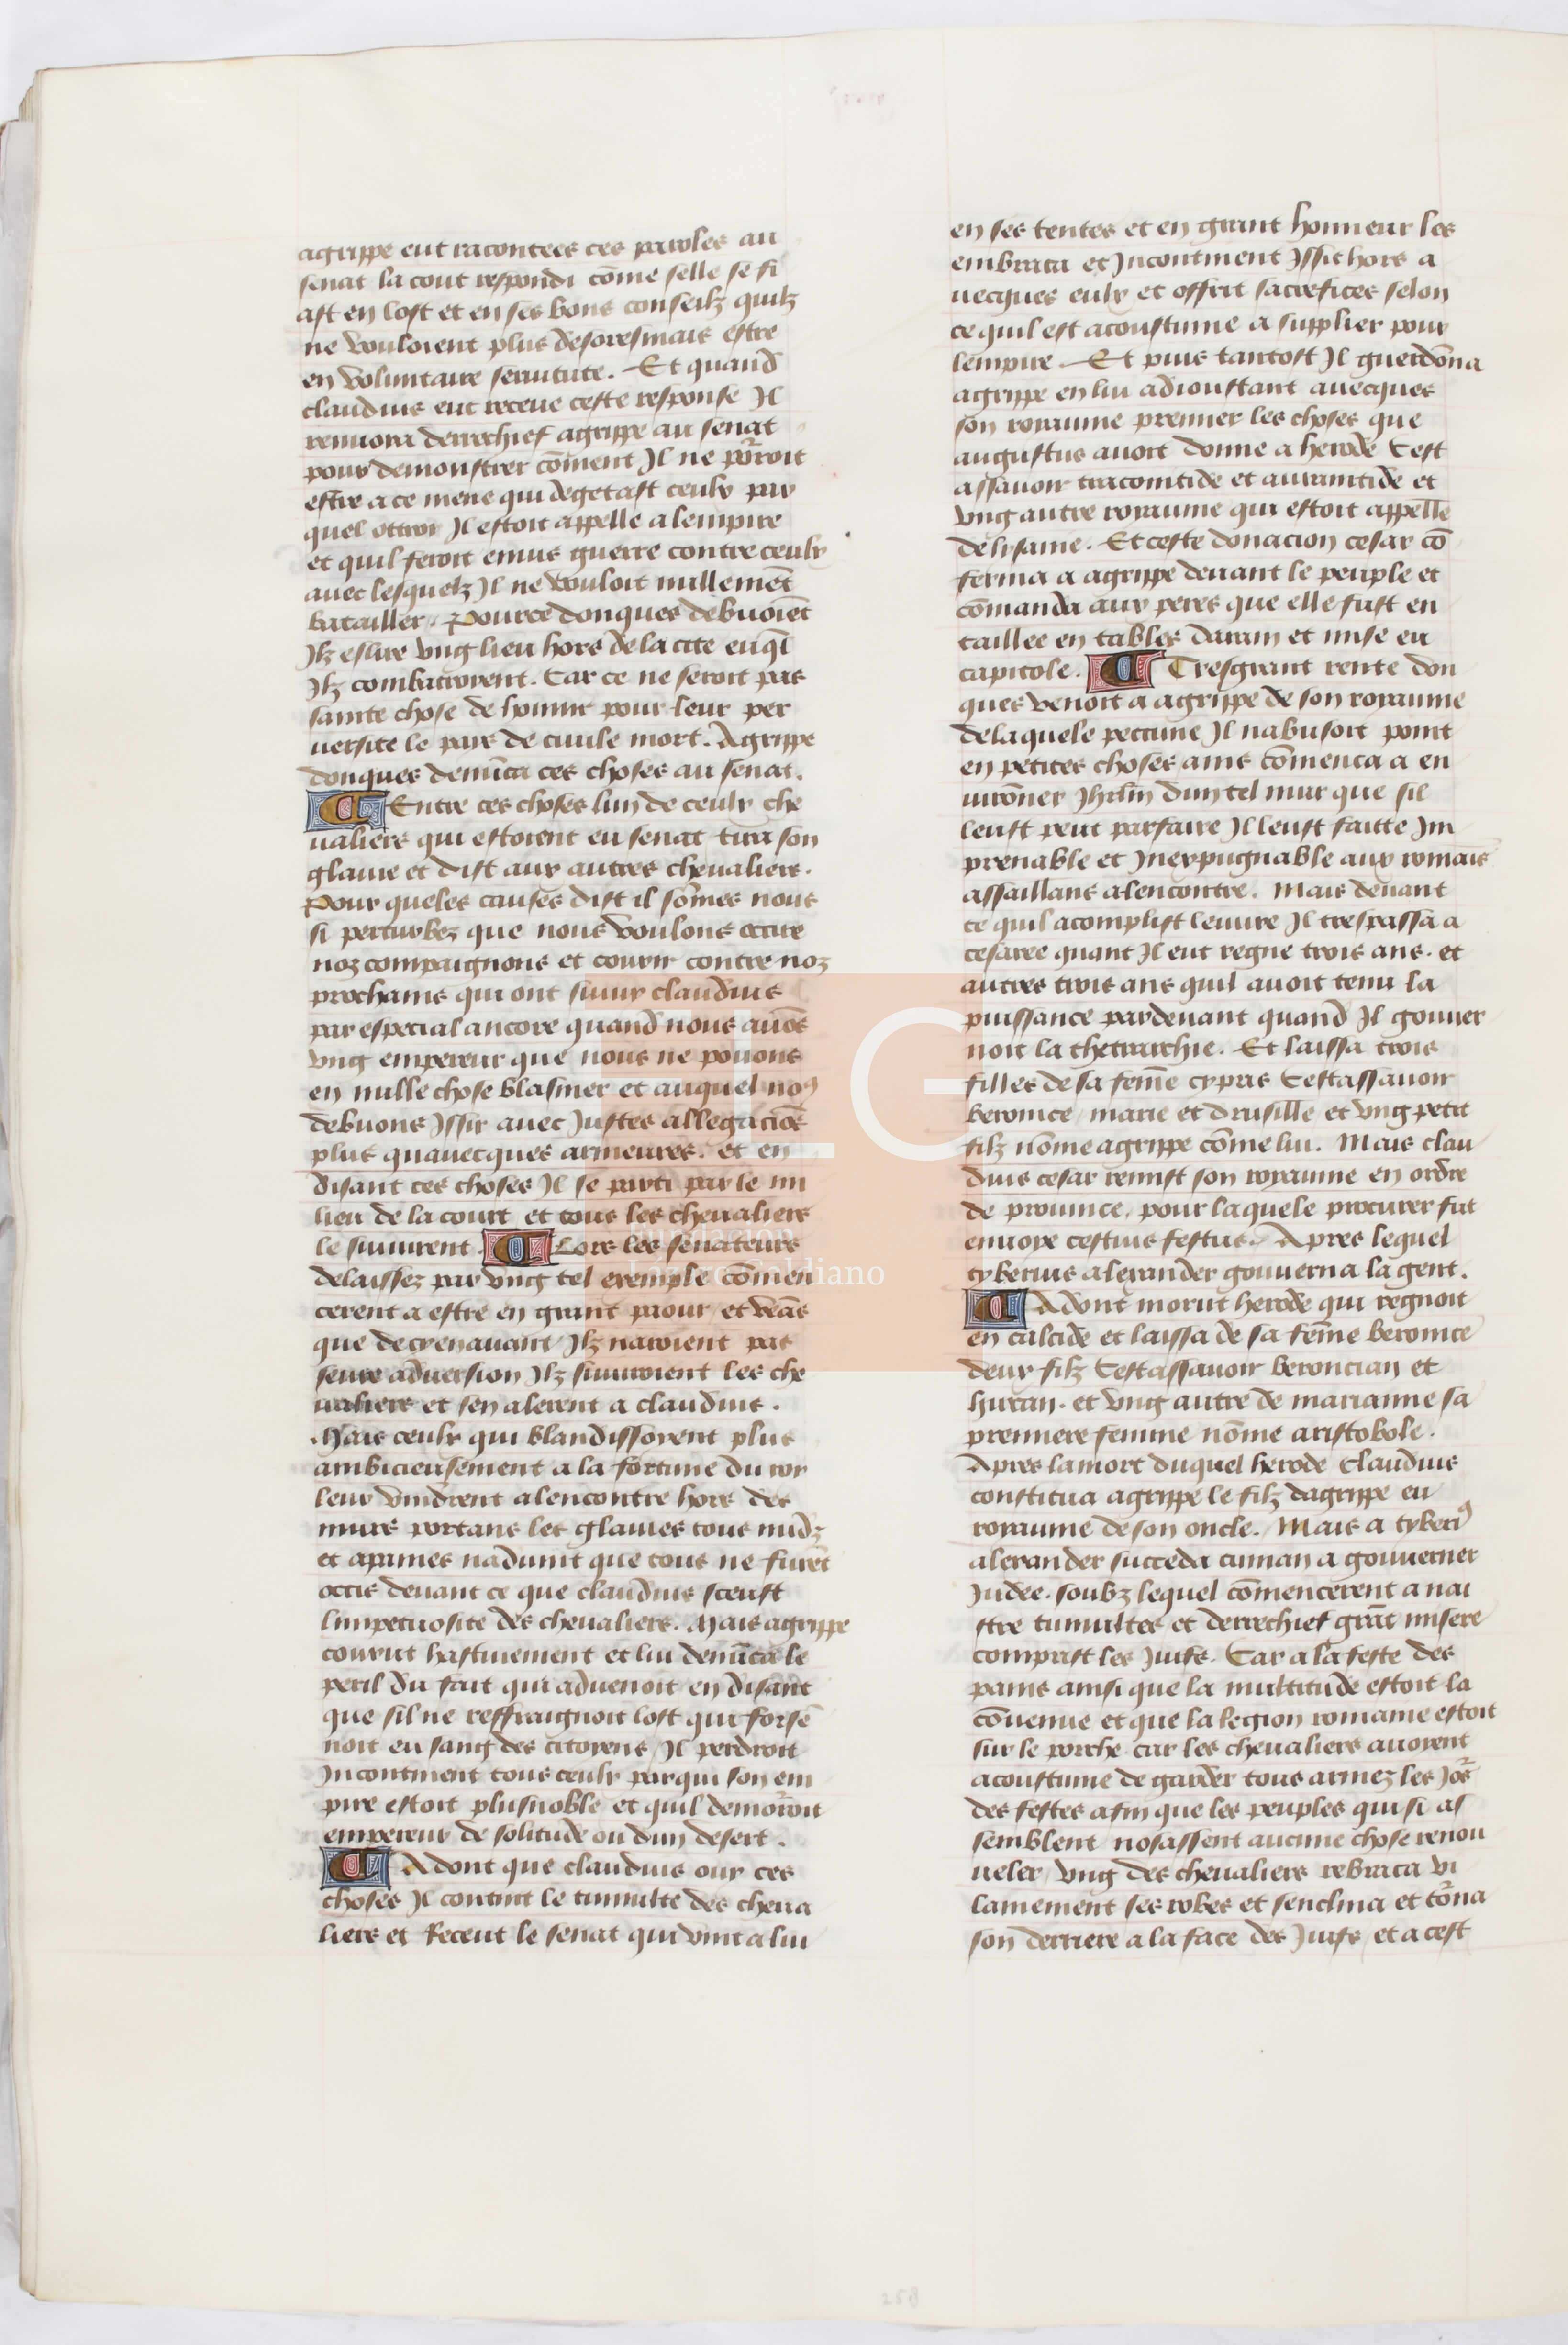 agrippe eut racontees ces paroles au
senat la court respondi cōme selle se fi
ast en lost et en ses bons conseilz quilz
ne vouloient plus desoresmais estre
en voluntaire seruitute. Et quand
claudius eut receue ceste response Il
renuoia derrechief agrippe au senat
pour demonstrer cōment Il ne porroit
estre a ce mene qui degetast ceulx par
quel ottroy Il estoit appelle a lempire
et quil feroit enuis guerre contre ceulx
auec lesquelz Il ne vouloit nullemēt
batailler. Pource donques debuoiēt
Ilz eslire vng lieu hors de la cite en q̄l
Ilz combatroyent. Car ce ne seroit pas
sainte chose de honnir pour leur per
uersite le pays de ciuile mort. Agrippe
donques denūca ces choses au senat.
Entre ces choses lun de ceulx che
ualiers qui estoient eu senat tira son
glaiue et dist aux autres cheualiers.
Pour queles causes dist il sōmes nous
si perturbez que nous voulons occire
noz compaignons et courir contre noz
prochains qui ont suiuy claudius
par especial ancore quand nous auōs
vng empereur que nous ne pouons
en nulle chose blasmer et auquel noꝰ
debuons Issir auec Justes allegaciōs
plus quauecques armeures. et en
disant ces choses Il se parti par le mi
lieu de la court et tous les cheualiers
le suiuirent. Lors les senateurs
delaissez par vng tel exemple cōmen
cerent a estre en grant paour et veās
que decyenauant Ilz naroient pas
seure aduersion Ilz suiuroient les che
ualiers et sen alerent a claudius.
Mais ceulx qui blandissoyent plus
ambicieusement a la fortune du roy
leur vindrent alencontre hors des
murs portans les glaiues tous nudz
et apaines naduint que tous ne furēt
occis deuant ce que claudius sceust
limpetuosite des cheualiers. Mais agrippe
courut hastiuement et lui denūca le
peril du fait qui aduenoit en disant
que sil ne reffraignoit lost qui forsē
noit eu sang des citoyens Il perdroit
Incontinent tous ceulx par qui son em
pire estoit plus noble et quil demorroit
empereur de solitude ou dun desert.
Adont que claudius ouy ces
choses Il contint le tumulte des cheua
liers et Receut le senat qui vint a lui
en ses tentes et en grant honneur les
embraca et Incontinent Issit hors a
uecques eulx et offrit sacrefices selon
ce quil est acoustume a supplier pour
lempire. Et puis tantost Il guerdōna
agrippe en lui adioustant auecques
son royaume premier les choses que
augustus auoit donne a herode Cest
assauoir traconitide et auranitide et
vng autre royaume qui estoit appelle
de lysanie. Et ceste donacion cesar cō
ferma a agrippe deuant le peuple et
cōmanda aux peres que elle fust en
taillee en tables darain et mise eu
capitole. Tresgrant rente don
ques venoit a agrippe de son royaume
de laquele peccune Il nabusoit point
en petites choses ains cōmenca a en
uirōner Jhrl̄m dun tel mur que sil
leust peut parfaire Il leust faitte Im
prenable et Inexpugnable aux romais
assaillans alencontre. Mais deuant
ce quil acomplist leuure Il trespassa a
cesaree quant Il eut regne trois ans. et
autres trois ans quil auoit tenu la
puissance pardeuant quand Il gouuer
noit la thetrarchie. Et laissa trois
filles de sa fem̄e cypras Cestassauoir
beronice marie et drusille et vng petit
filz nōme agrippe cōme lui. Mais clau
dius cesar remist son royaume en ordre
de prouince. pour laquele procurer fut
enuoye cestius festus. Apres lequel
tyberius alexander gouuerna la gent.
Adont morut herode qui regnoit
en calcide et laissa de sa fēme beronice
deux filz Cestassauoir beroncian et
hircan. et vng autre de marianne sa
premiere femme nōme aristobole.
Apres la mort duquel herode Claudius
constitua agrippe le filz dagrippe eu
royaume de son oncle. Mais a tyberiꝰ
alexander succeda cuman a gouuerner
Judee. soubz lequel cōmencerent a nai
stre tumultes et derrechief grāt misere
comprist les Juifs. Car a la feste des
pains ainsi que la multitude estoit la
cōuenue et que la legion romaine estoit
sur le porche car les cheualiers auoyent
acoustume de garder tous armez les Jors
des festes afin que les peuples qui si as
semblent nosassent aucune chose renou
ueler vng des cheualiers rebraca vi
lainement ses robes et senclina et torna
son derriere a la face des Juifs et a cest
258